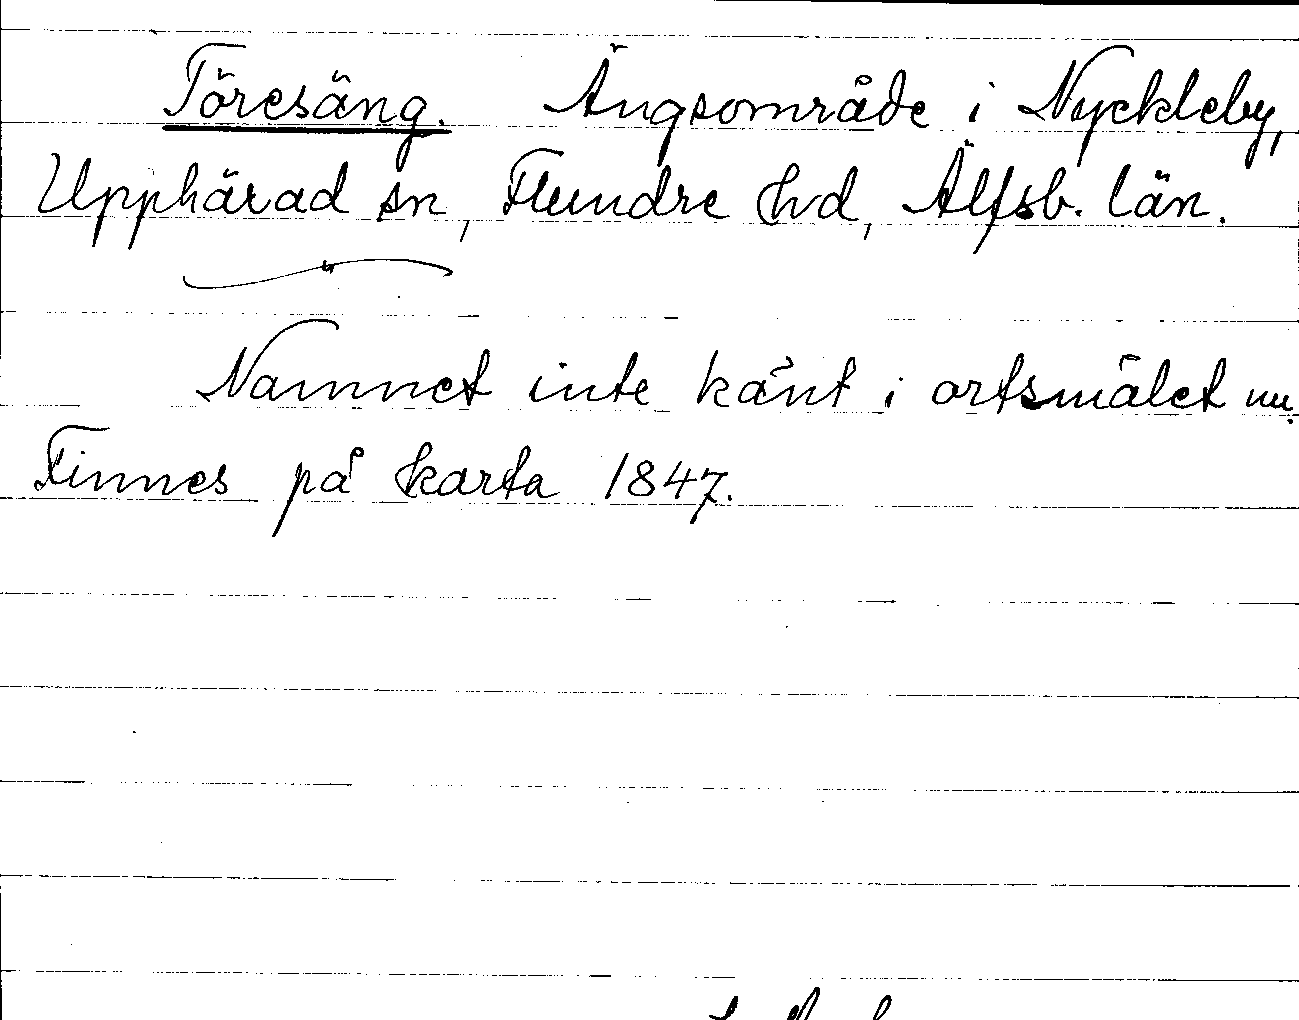 Töresäng. Ängsområde i Nyckleby,
Upphärad sn, Flundre hd, Älfsb. län.
Namnet inte känt i ortsmålet nu.
Finnes på karta 1847.